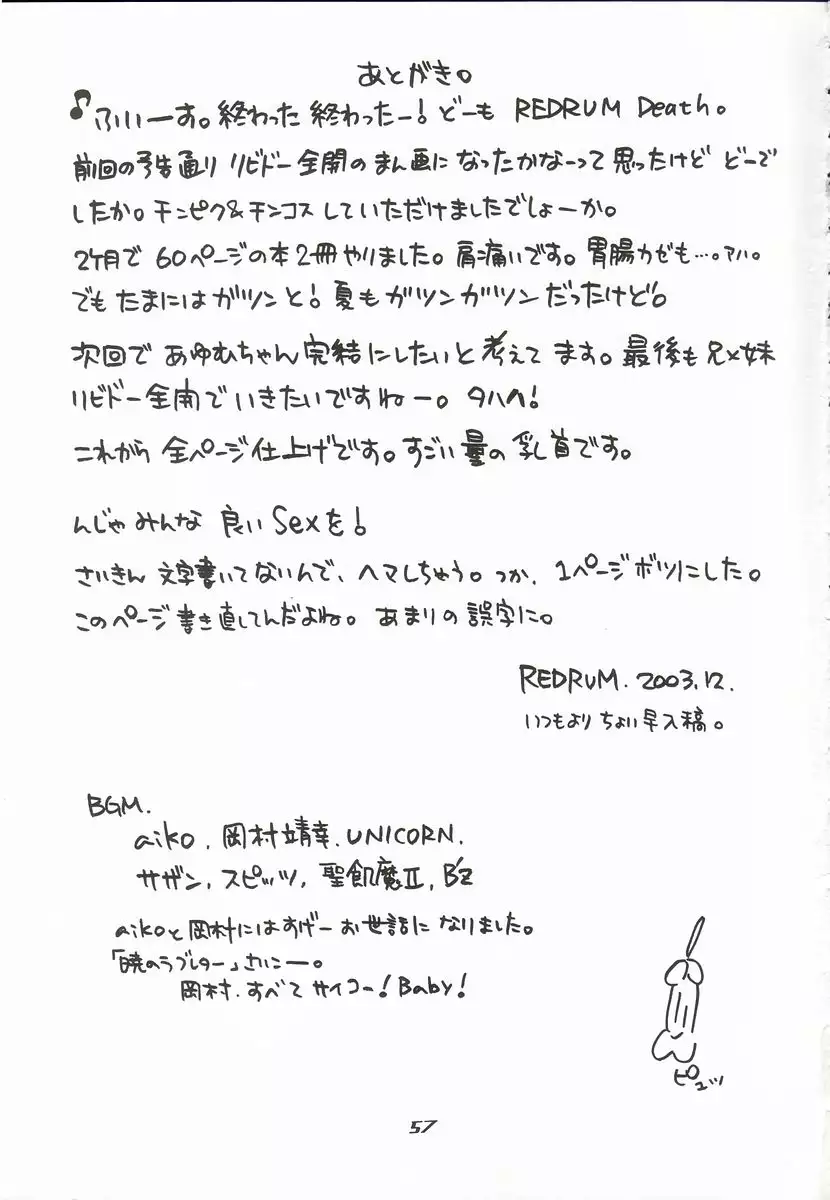 あとがき。
♪ふいーす。終わった終わったー!どーも REDRUM Death。
前回の予告通り リビドー全開のまん画になったかなーって思ったけど どーで
したか。チンピク&チンコスしていただけましたでしょーか。
2ヶ月で 60ページの本2冊やりました。肩痛いです。胃腸カゼも…。アハ。
でもたまにはガツンと!夏もガツンガツンだったけど。
次回で あゆむちゃん完結にしたいと考えてます。最後も兄×妹
リビドー全開でいきたいですねー。タハハ!
これから 全ページ仕上げです。すごい量の乳首です。
んじゃみんな 良いSexを!
さいきん 文字書いてないんで、ヘマしちゃう。つか、1ページボツにした。
このページ書き直してんだよね。あまりの誤字に。
REDRUM. 2003.12.
いつもより ちょい早入稿。
BGM.
aiko, 岡村靖幸, UNICORN,
サザン, スピッツ, 聖飢魔II, B'z
aikoと岡村にはすげーお世話になりました。
「暁のラブレター」さいこー。
岡村、すべてサイコー!Baby!
ピュッ
57